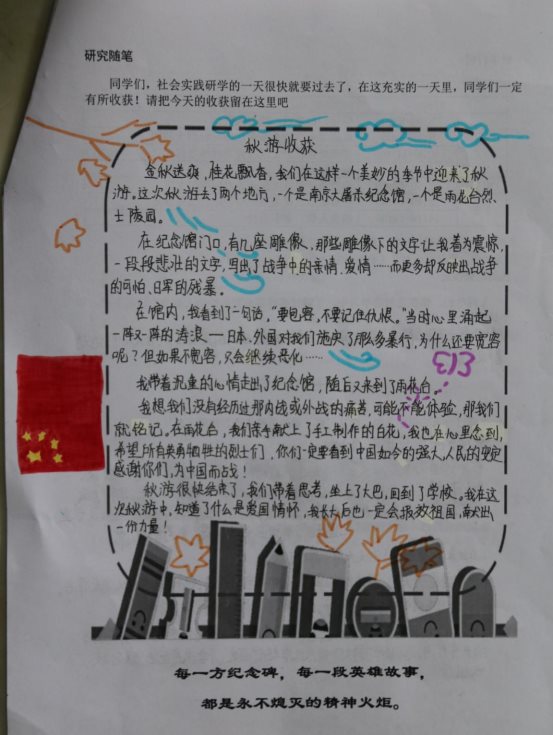 研究随笔
同学们，社会实践研学的一天很快就要过去了，在这充实的一天里，同学们一定
有所收获！请把今天的收获留在这里吧
秋游收获
金秋送爽，桂花飘香，我们在这样一个美妙的季节中迎来了秋
游。这次秋游去了两个地方，一个是南京大屠杀纪念馆，一个是雨花台烈
士陵园。
在纪念馆门口，有几座雕像，那些雕像下的文字让我着为震惊，
一段段悲壮的文字，写出了战争中的亲情、爱情……而更多却反映出战争
的可怕、日军的残暴。
在馆内，我看到了一句话，“要包容，不要记住仇恨。”当时心里涌起
一阵又一阵的涛浪——日本、外国对我们施实了那么多暴行，为什么还要宽容
呢？但如果不宽容，只会继续恶化……
我带着沉重的心情走出了纪念馆，随后又来到了雨花台。
我想我们没有经历过那内战或外战的痛苦，可能不能体验，那我们
就铭记。在雨花台，我们亲手献上了手工制作的白花，我也在心里念到，
希望所有英勇牺牲的烈士们，你们一定要看到中国如今的强大，人民的安定
感谢你们，为中国而战！
秋游很快结束了，我们带着思考，坐上了大巴，回到了学校。我在这
次秋游中，知道了什么是爱国情怀，我长大后也一定会报效祖国，献出
一份力量！
每一方纪念碑，每一段英雄故事，
都是永不熄灭的精神火炬。